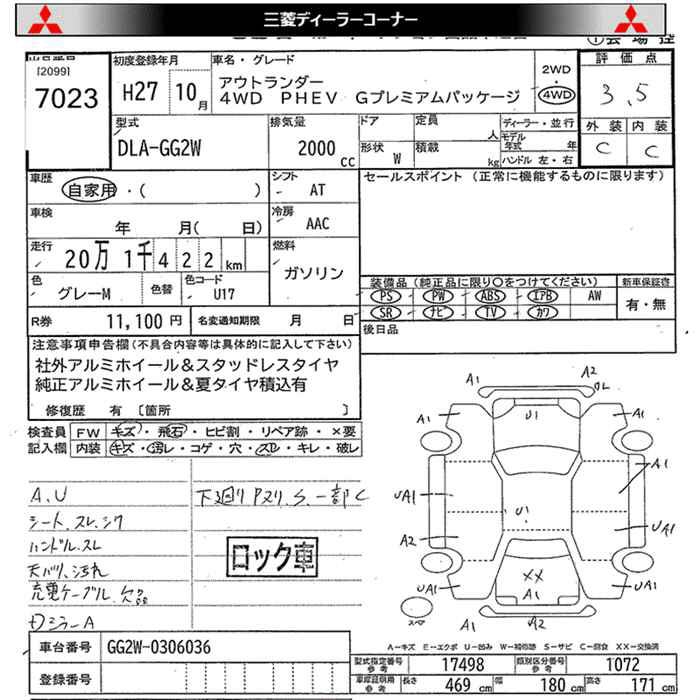 三菱ディーラーコーナー
[2099]
7023
初度登録年月
H27 10月
車名・グレード
アウトランダー
4WD PHEV Gプレミアムパッケージ
2WD
4WD
評価点
3.5
外装 内装
C C
型式
DLA-GG2W
排気量
2000 cc
ドア
形状 W
定員 人
積載 kg
ディーラー・並行
モデル年式 年
ハンドル 左・右
車歴
自家用・( )
シフト
AT
セールスポイント (正常に機能するものに限ります)
車検
年 月( 日)
冷房
AAC
走行
20万 1千 4 2 2 km
燃料
ガソリン
色
グレーM
色替
色コード
U17
装備品 (純正品に限り○をつけてください)
PS PW ABS エアB AW
SR ナビ TV カワ
新車保証書
有・無
R券 11,100 円
名変通知期限 月 日
後日品
注意事項申告欄 (不具合内容等は具体的に記入して下さい)
社外アルミホイール&スタッドレスタイヤ
純正アルミホイール&夏タイヤ積込有
修復歴 有 [箇所 ]
検査員 FW キズ・飛石・ヒビ割・リペア跡・×要
記入欄 内装 キズ・汚レ・コゲ・穴・スレ・キレ・破レ
A,U
シート,スレ,シワ
ハンドル,スレ
天バリ,汚れ
充電ケーブル,欠品
下廻りPスリ,S,一部C
ロック車
A2
A2
A1
U1
A1
A1
UA1
U1
UA1
A2
XX
UA1
A1
UA1
A2
スペア
A-キズ E-エクボ U-凹み W-補修跡 S-サビ C-腐食 XX-交換済
車台番号 GG2W-0306036
登録番号
型式指定番号 参考 17498
類別区分番号 参考 1072
車庫証明用 参考 長さ 469 cm 幅 180 cm 高さ 171 cm